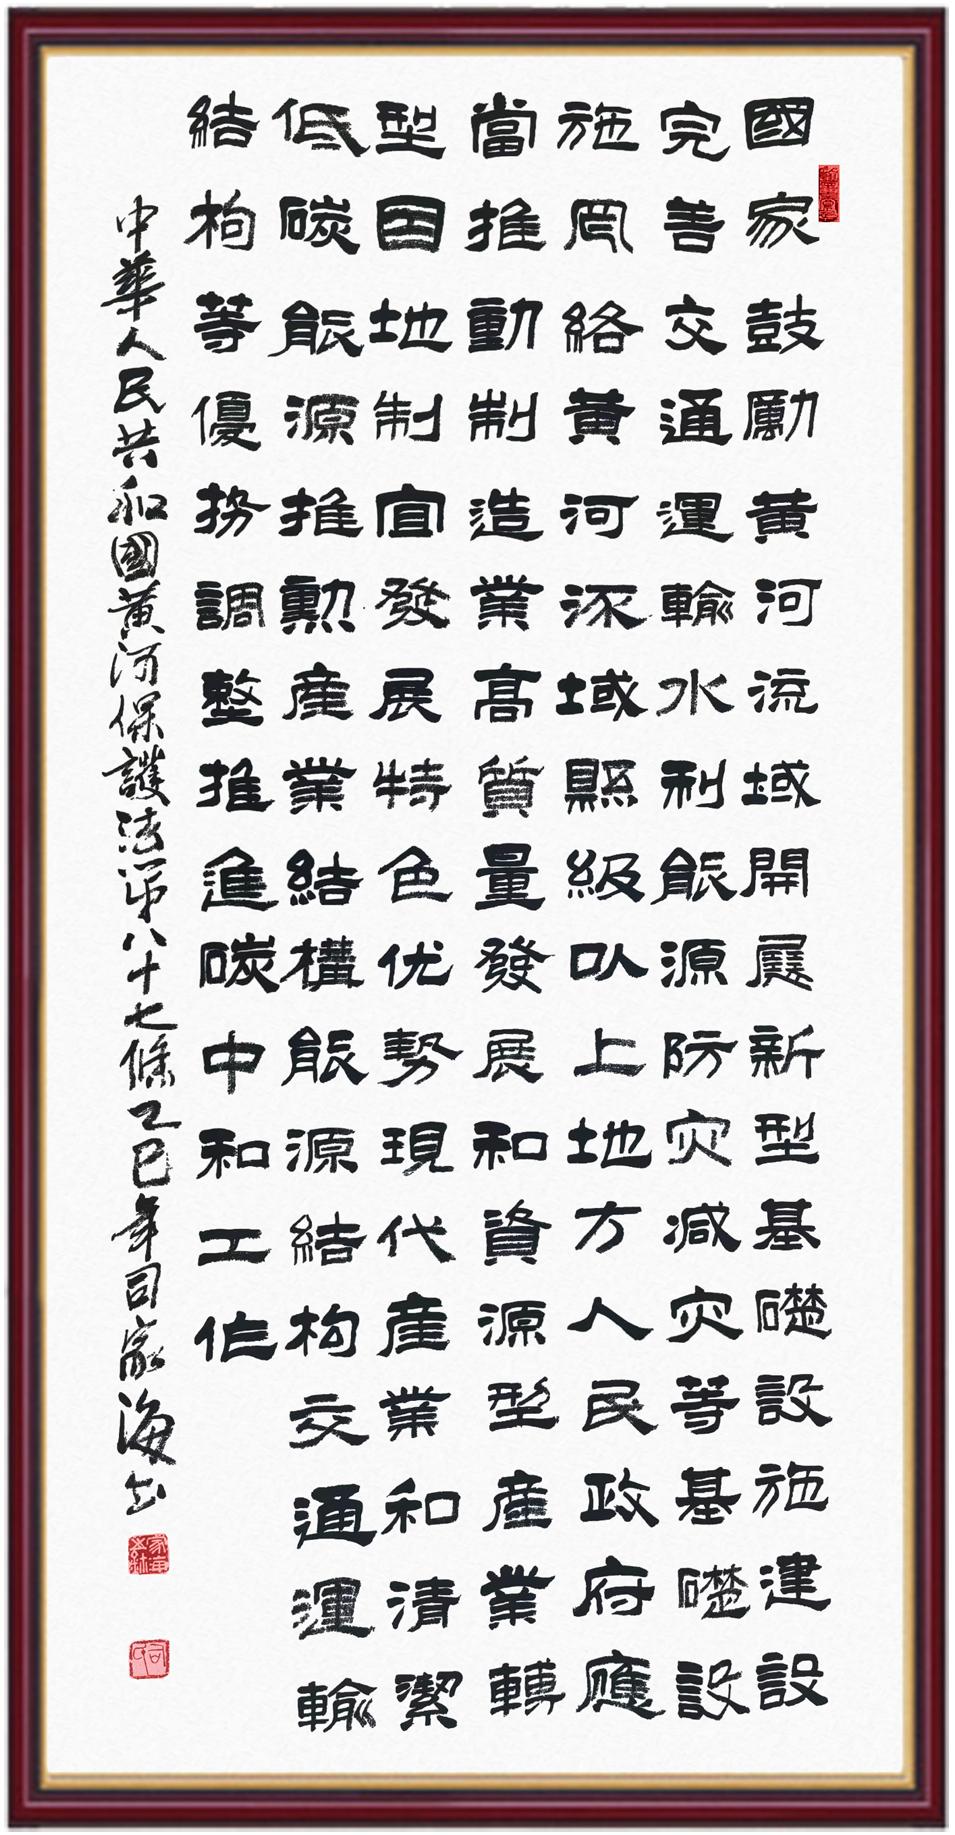 國家鼓勵黄河流域開展新型基礎設施建設
完善交通運輸水利能源防灾減灾等基礎設
施网絡黄河流域縣級以上地方人民政府應
當推動制造業高質量發展和資源型産業轉
型因地制宜發展特色优勢現代産業和清潔
低碳能源推勳産業結構能源結构交通運輸
結构等優势調整推進碳中和工作
中華人民共和國黄河保護法第八十七條乙巳年司家海书